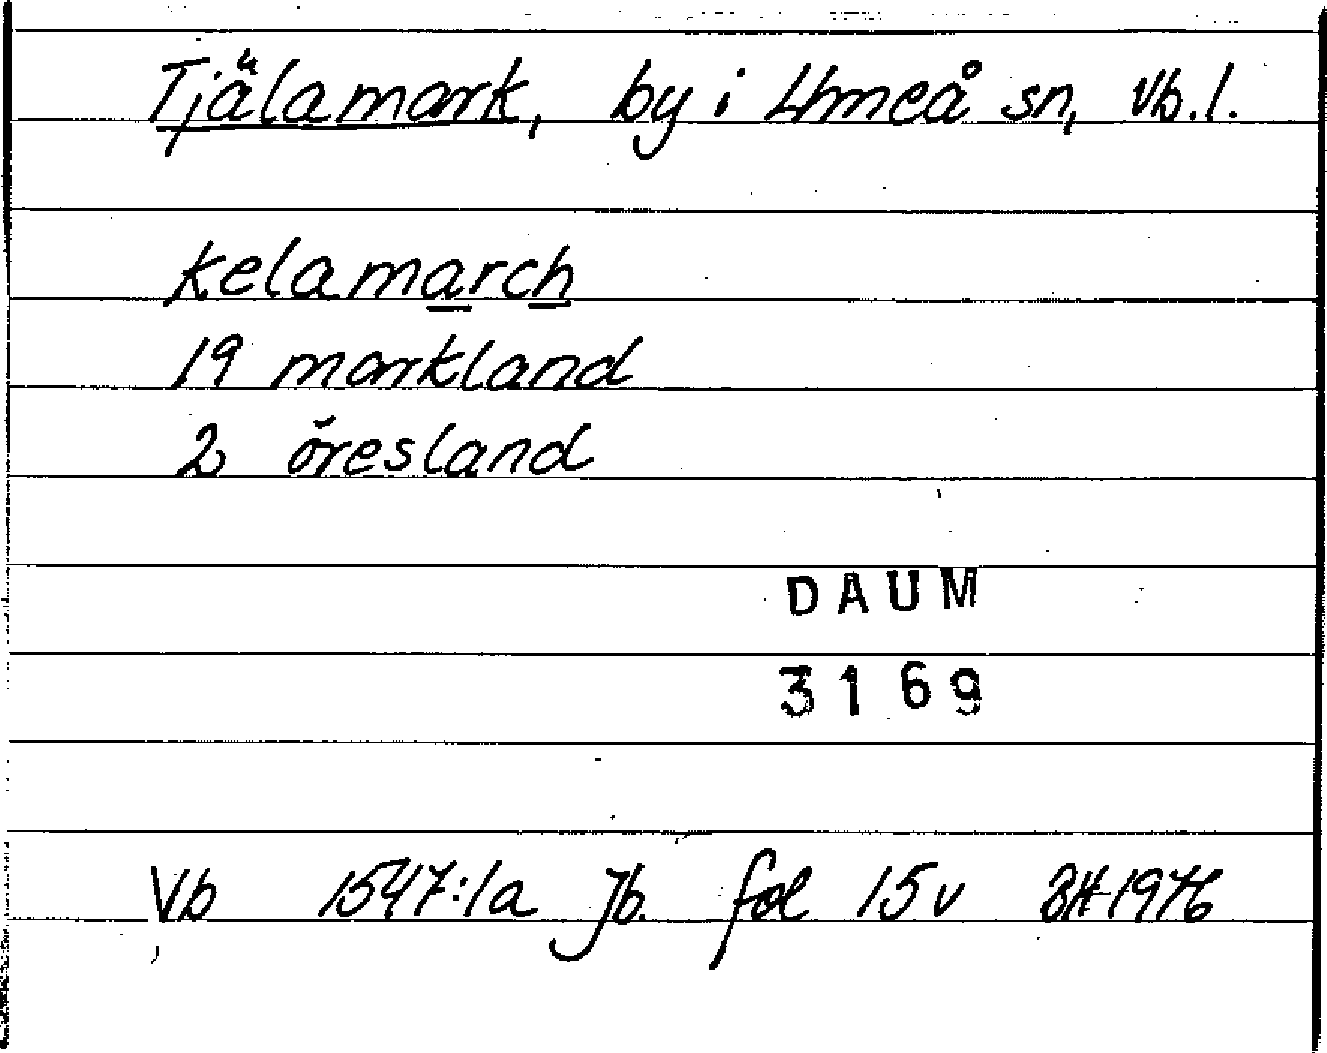 Tjälamark, by i Umeå sn, Vb.l.
kelamarch
19 markland
2 öresland
DAUM
3169
Vb 1547:1a Jb. fol 15v BH 1976